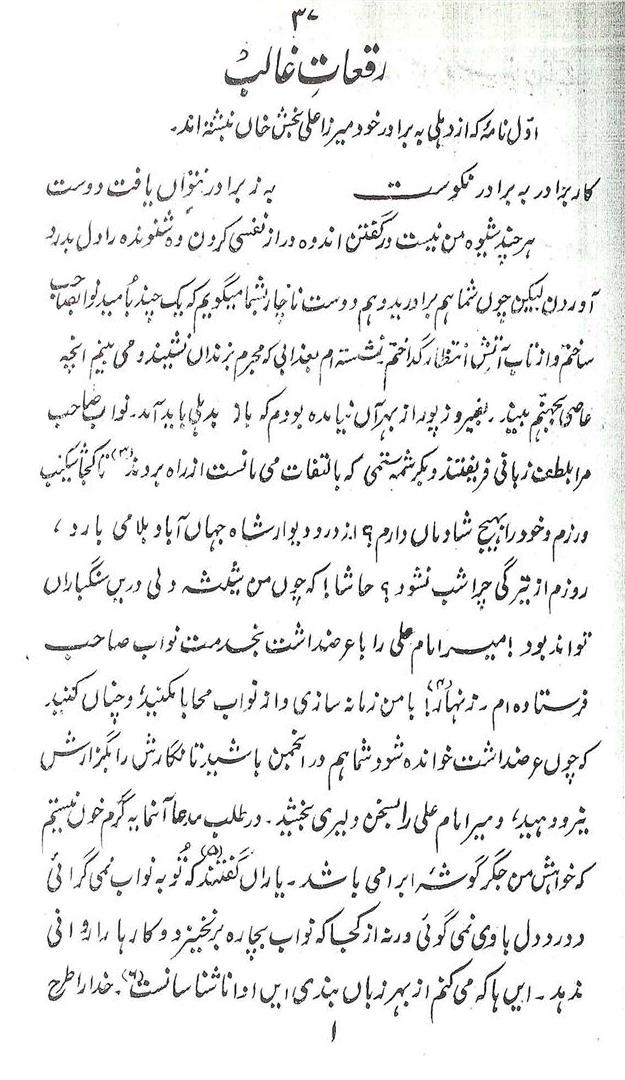 ۳۷
رقعاتِ غالب
اوّل نامۂ کہ از دہلی بہ برادر خود میرزا علی بخش خاں نبشتہ اند۔
کار برادر بہ برادر نکوست بہ ز برادر نتواں یافت دوست
ہر چند شیوہ من نیست در گفتن اندوہ دراز نفسی کردن وہ شنوندہ را دل بدرد
آوردن لیکن چوں شما ہم برادرید و ہم دوست ناچار بشما میگویم کہ یک چند بامید نوابصاحب
ساختم و از تاب آتش انتظار گداختم نشستہ ام بعذابی کہ مجرم بزنداں نشیند و می بینم انچہ
عاصی بجہنّم بیند۔ بفیروز پور از بہر آں نیامدہ بودم کہ باز بدہلی باید آمد۔ نواب صاحب
مرا بلطف زبانی فریفتند و بکرشمہ ستمی کہ بالتفات می مانست از راہ بردند(۳) تا کجا شکیب
ورزم و خود را بہیچ شادماں دارم؟ از در و دیوار شاہ جہاں آباد بلا می بارد،
روزم از تیرگی چرا شب نشود؟ حاشا! کہ چوں من شکستہ دلی دریں سنگباراں
تواند بود! میر امام علی را با عرضداشت بخدمت نواب صاحب
فرستادہ ام۔ زنہار(۴)! با من زمانہ سازی و از نواب محابا مکنید و چناں کنید
کہ چوں عرضداشت خواندہ شود شما ہم در انجمن باشید تا نگارش را بگزارش
نیرو دہید، و میر امام علی را بسخن دلیری بخشید۔ در طلب مدعا آنمایہ گرم خون نیستم
کہ خواہش من جگر گوشۂ ابرام باشد۔ یاراں گفتند(۵) کہ تو بہ نواب نمی گرائی
و درد دل باوی نمی گوئی ورنہ از کجا کہ نواب بچارہ برنخیزد و کارہا را روانی
ندہد۔ ایں ہا کہ می کنم از بہر زباں بندی ایں ادا ناشناسانست(۶)۔ خدا را طرح
۱